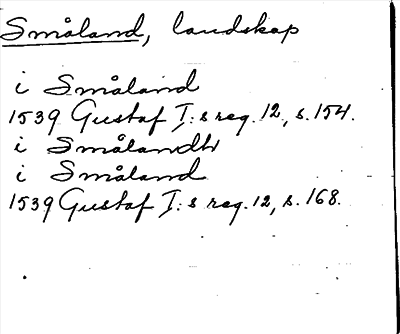 Småland, landskap
i Småland
1539 Gustaf I:s reg. 12, s. 154.
i Smålandh
i Småland
1539 Gustaf I:s reg. 12, s. 168.